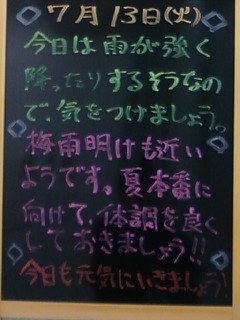 7月13日(火)
今日は雨が強く
降ったりするそうなの
で、気をつけましょう。
梅雨明けも近い
ようです。夏本番に
向けて、体調を良く
しておきましょう!!
今日も元気にいきましょう!